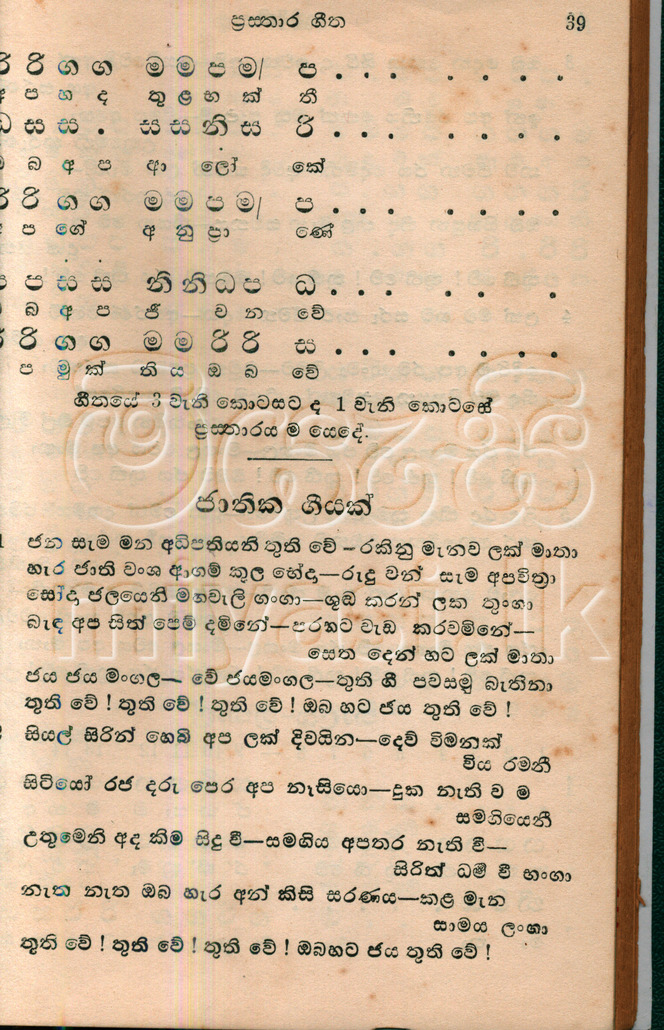 ප්‍රස්තාර ගීත 39
රි රි ග ග ම ම ප ම/ ප . . . . . . .
ප හ ද තු ළ භ ක් ති
ස ස . ස ස නි ස රි . . . . . . .
බ අ ප ආ ලෝ කේ
රි රි ග ග ම ම ප ම/ ප . . . . . . .
ප ගේ අ නු ප්‍රා ණේ
ප ප ස ස නි නි ධ ප ධ . . . . . . .
බ අ ප ජී ව න වේ
රි රි ග ග ම ම රි රි ස . . . . . . .
ප මු ක් ති ය ඔ බ වේ
ගීතයේ 3 වැනි කොටසට ද 1 වැනි කොටසේ
ප්‍රස්තාරය ම යෙදේ.
ජාතික ගීයක්
1 ජන සැම මන අධිපතියනි තුති වේ — රකිනු මැනව ලක් මාතා
හැර ජාති වංශ ආගම් කුල භේදා—රුදු වන් සැම අපවිත්‍රා
සෝදා ජලයෙනි මහවැලි ගංගා—ශුඬ කරන් ලක තුංගා
බැඳ අප සිත් පෙම් දමිනේ—පරහට වැඩ කරවමිනේ—
සෙත දෙන් හට ලක් මාතා
ජය ජය මංගල— වේ ජයමංගල—තුති ගී පවසමු බැතිනා
තුති වේ ! තුති වේ ! තුති වේ ! ඔබ හට ජය තුති වේ !
සියල් සිරින් හෙබි අප ලක් දිවයින—දෙව් විමනක්
විය රමනී
සිටියෝ රජ දරු පෙර අප නෑසියො—දුක නැති ව ම
සමගියෙනී
උතුමෙනි අද කිම සිදු වී—සමගිය අපතර නැති වී—
සිරිත් ධම් වී භංගා
නැත නැත ඔබ හැර අන් කිසි සරණය—කළ මැන
සාමය ලංඟා
තුති වේ ! තුති වේ ! තුති වේ ! ඔබහට ජය තුති වේ !
මියැසි
miyasi.lk